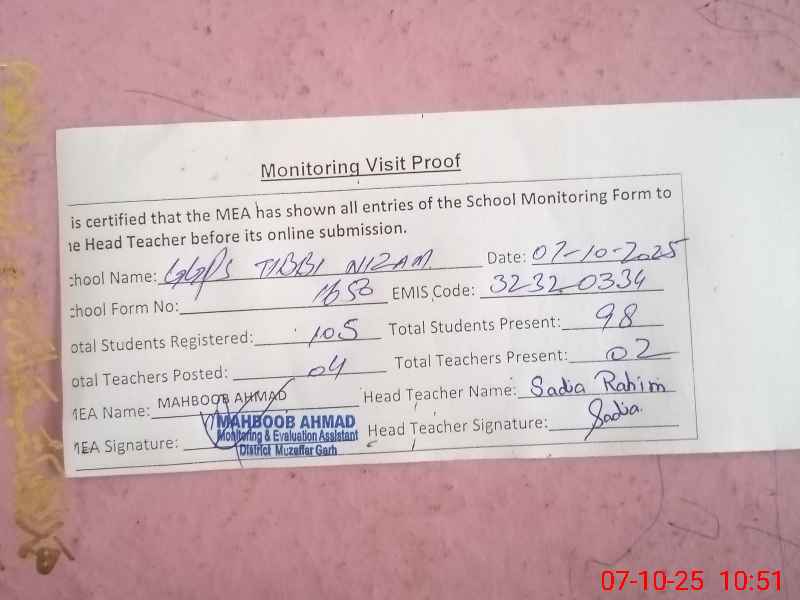 Monitoring Visit Proof
is certified that the MEA has shown all entries of the School Monitoring Form to
e Head Teacher before its online submission.
chool Name: GGPS TIBBI NIZAM Date: 07-10-2025
chool Form No: 1653 EMIS Code: 32320334
otal Students Registered: 105 Total Students Present: 98
otal Teachers Posted: 04 Total Teachers Present: 02
MEA Name: MAHBOOB AHMAD Head Teacher Name: Sadia Rahim
MEA Signature: Head Teacher Signature: Sadia
MAHBOOB AHMAD
Monitoring & Evaluation Assistant
District Muzaffar Garh
07-10-25 10:51